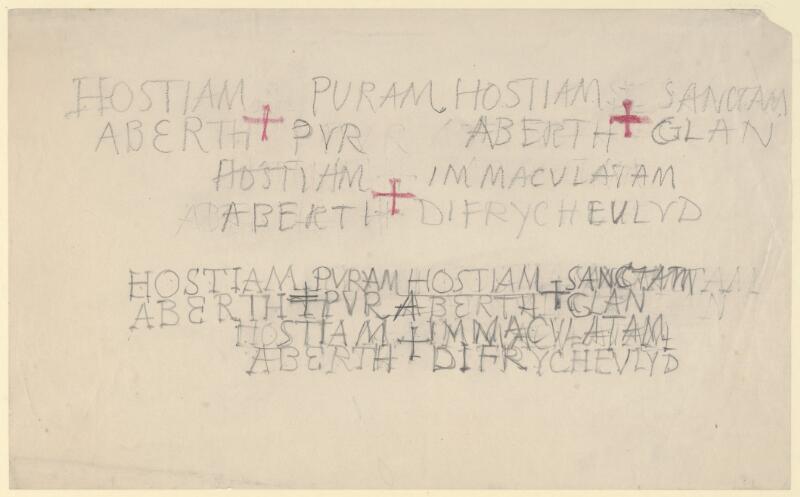 HOSTIAM + PURAM HOSTIAM + SANCTAM
ABERTH PVR ABERTH GLAN
HOSTIAM + IMMACVLATAM
ABERTH DIFRYCHEULYD
HOSTIAM PVRAM HOSTIAM + SANCTAM
ABERTH + PVR ABERTH GLAN
HOSTIAM + IMMACVLATAM
ABERTH DIFRYCHEVLYD